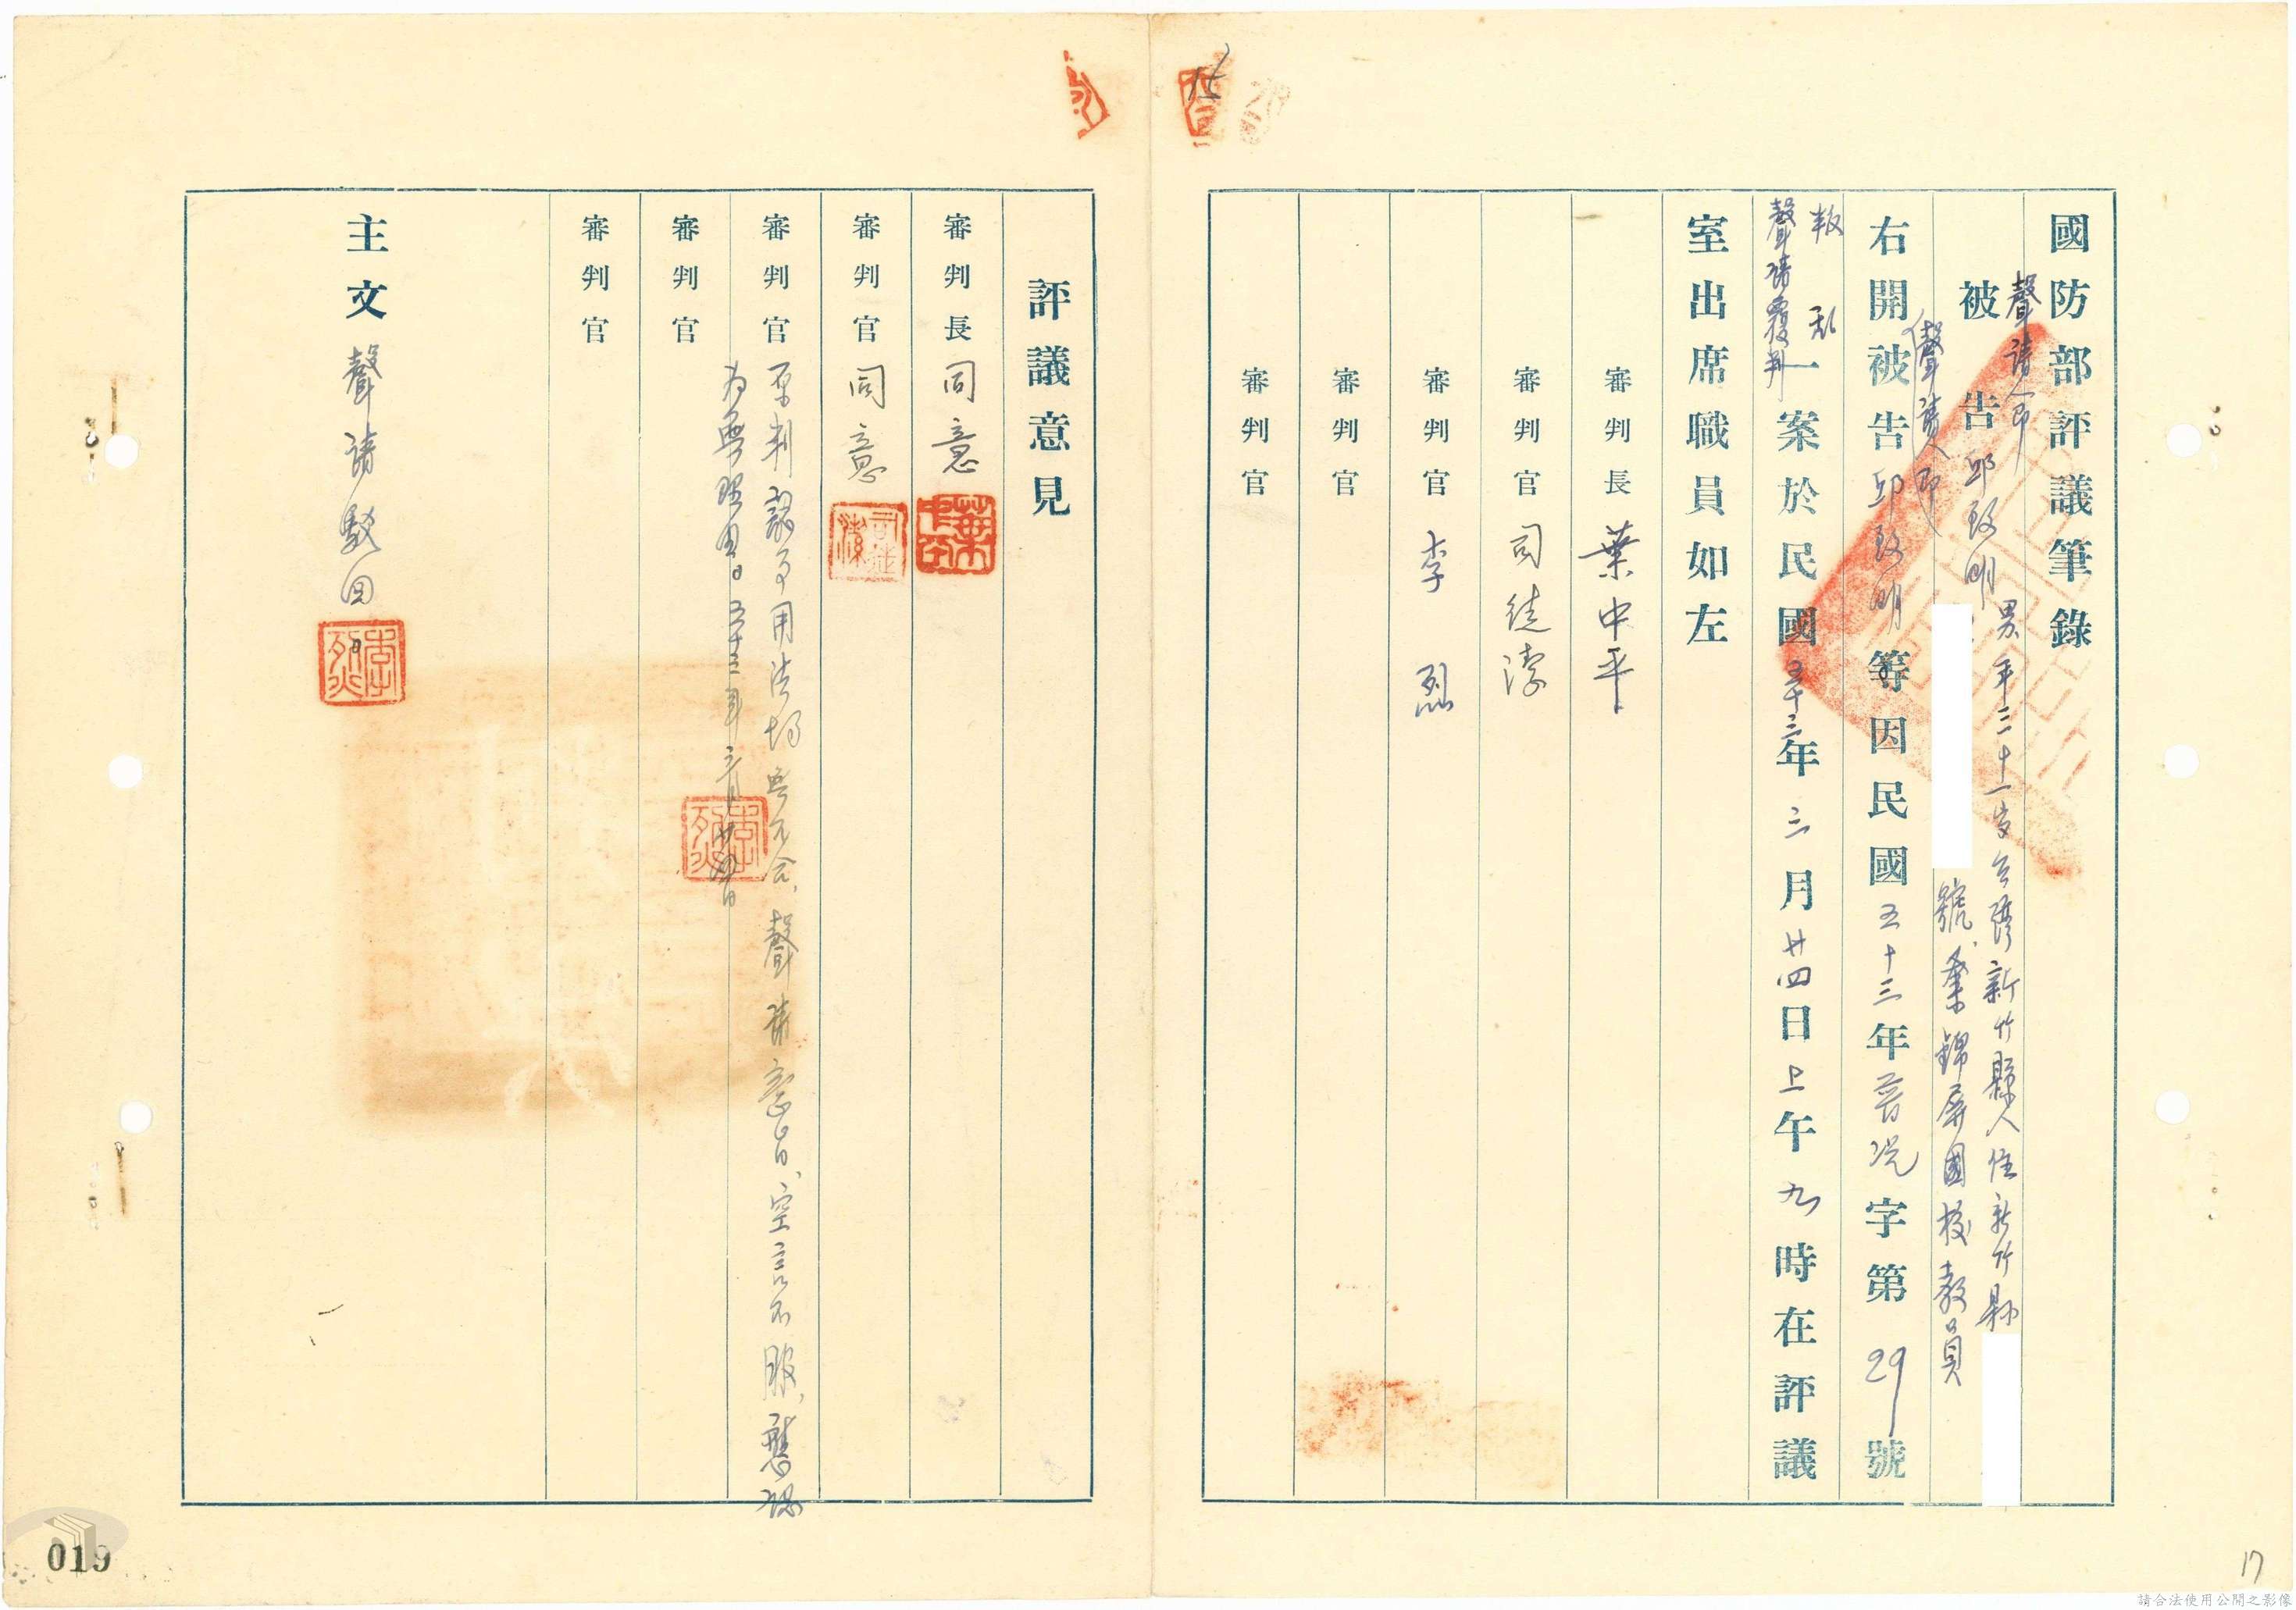 國防部評議筆錄
聲請人即
被告邱致明男年三十一歲台灣新竹縣人住新竹縣
號、業錦屏國校教員
右開被告邱致明等因民國五十三年普抗字第29號
(聲請人即)
叛亂
聲請覆判一案於民國五十三年三月廿四日上午九時在評議
室出席職員如左
審判長葉中平
審判官司徒澐
審判官李烈
審判官
審判官
評議意見
審判長同意
審判官同意
審判官原判認事用法均無不合、聲請意旨、空言不服、應認
為無理由。五十三年三月廿四日
審判官
審判官
主文聲請駁回。
019
17
請合法使用公開之影像